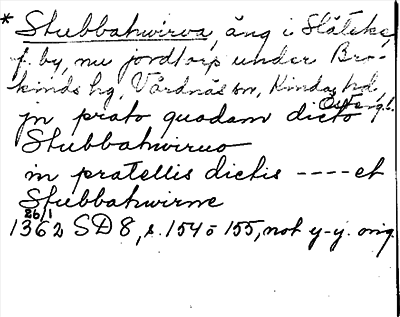 * Stubbahwirva, äng i Slätska,
f. by, nu jordtorp under Bro-
kinds hg, Vårdnäs sn, Kinda hd,
Östergl.
jn prato quodam dicto
Stubbahwiruo
in pratellis dictis ---- et
Stubbahwirne
26/1
1362 SD 8, s. 154 o 155, not y-y. orig.